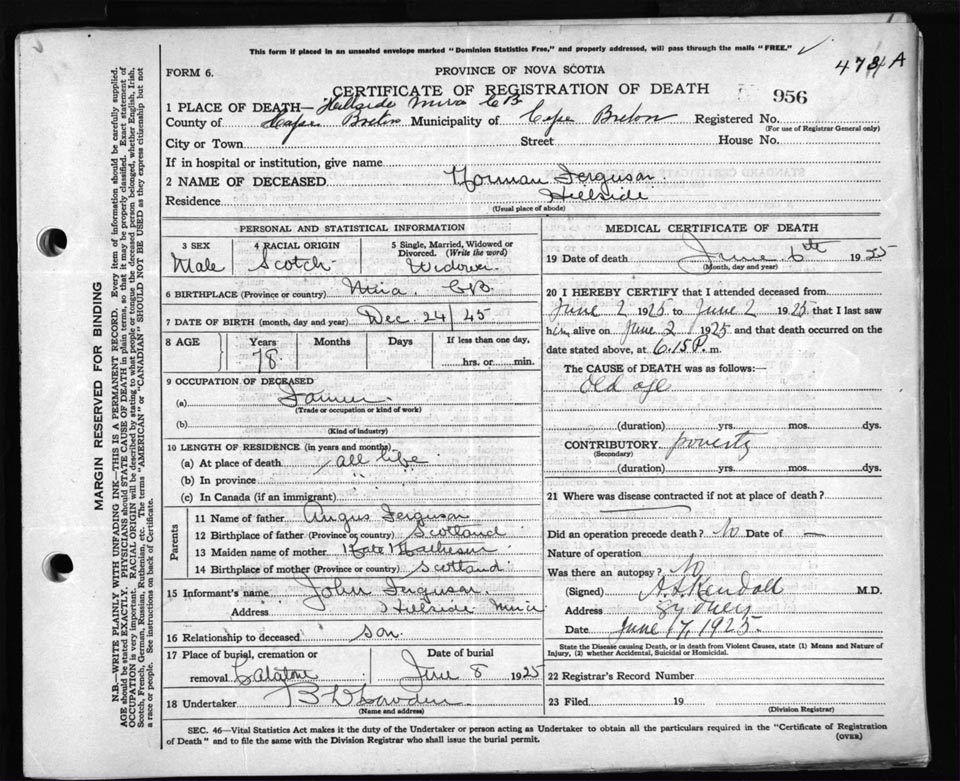 This form if placed in an unsealed envelope marked "Dominion Statistics Free," and properly addressed, will pass through the mails "FREE."
FORM 6.
PROVINCE OF NOVA SCOTIA
CERTIFICATE OF REGISTRATION OF DEATH
956
1 PLACE OF DEATH— Hillside Mira CB
County of Cape Breton Municipality of Cape Breton Registered No.
(For use of Registrar General only)
City or Town Street House No.
If in hospital or institution, give name
2 NAME OF DECEASED Norman Ferguson
Residence Hillside
(Usual place of abode)
PERSONAL AND STATISTICAL INFORMATION
3 SEX 4 RACIAL ORIGIN 5 Single, Married, Widowed or Divorced. (Write the word)
Male Scotch Widower
6 BIRTHPLACE (Province or country) Mira CB
7 DATE OF BIRTH (month, day and year) Dec 24/45
8 AGE Years Months Days If less than one day,
78 hrs. or min.
9 OCCUPATION OF DECEASED
(a) Farmer
(Trade or occupation or kind of work)
(b)
(Kind of industry)
10 LENGTH OF RESIDENCE (in years and months)
(a) At place of death all life
(b) In province " "
(c) In Canada (if an immigrant) " "
Parents
11 Name of father Angus Ferguson
12 Birthplace of father (Province or country) Scotland
13 Maiden name of mother Kate Matheson
14 Birthplace of mother (Province or country) Scotland
15 Informant's name John Ferguson
Address Hillside Mira
16 Relationship to deceased son
17 Place of burial, cremation or removal Date of burial
June 8 1925
18 Undertaker
(Name and address)
MEDICAL CERTIFICATE OF DEATH
19 Date of death June 6th 1925
(Month, day and year)
20 I HEREBY CERTIFY that I attended deceased from
June 2 1925 to June 2 1925 that I last saw
him alive on June 2 1925 and that death occurred on
date stated above, at 6.15 P. m.
The CAUSE of DEATH was as follows:—
old age
(duration) yrs. mos. dys.
CONTRIBUTORY poverty
(Secondary)
(duration) yrs. mos. dys.
21 Where was disease contracted if not at place of death?
Did an operation precede death? No Date of —
Nature of operation
Was there an autopsy? No
(Signed) A.S. Kendall M.D.
Address Sydney
Date June 17, 1925.
State the Disease causing Death, or in death from Violent Causes, state (1) Means and Nature of
Injury, (2) whether Accidental, Suicidal or Homicidal.
22 Registrar's Record Number
23 Filed 19
(Division Registrar)
SEC. 46—Vital Statistics Act makes it the duty of the Undertaker or person acting as Undertaker to obtain all the particulars required in the "Certificate of Registration
of Death" and to file the same with the Division Registrar who shall issue the burial permit.
(OVER)
MARGIN RESERVED FOR BINDING
N.B.—WRITE PLAINLY WITH UNFADING INK—THIS IS A PERMANENT RECORD. Every item of information should be carefully supplied.
AGE should be stated EXACTLY. PHYSICIANS should STATE CAUSE OF DEATH in plain terms, so that it may be properly classified. Exact statement of
OCCUPATION is very important. RACIAL ORIGIN will be described by stating to what people or tongue the deceased person belonged, whether English, Irish,
Scotch, French, German, Russian, Ruthenian, etc. The terms "AMERICAN" or "CANADIAN" SHOULD NOT BE USED as they express citizenship but not
a race or people. See instructions on back of Certificate.